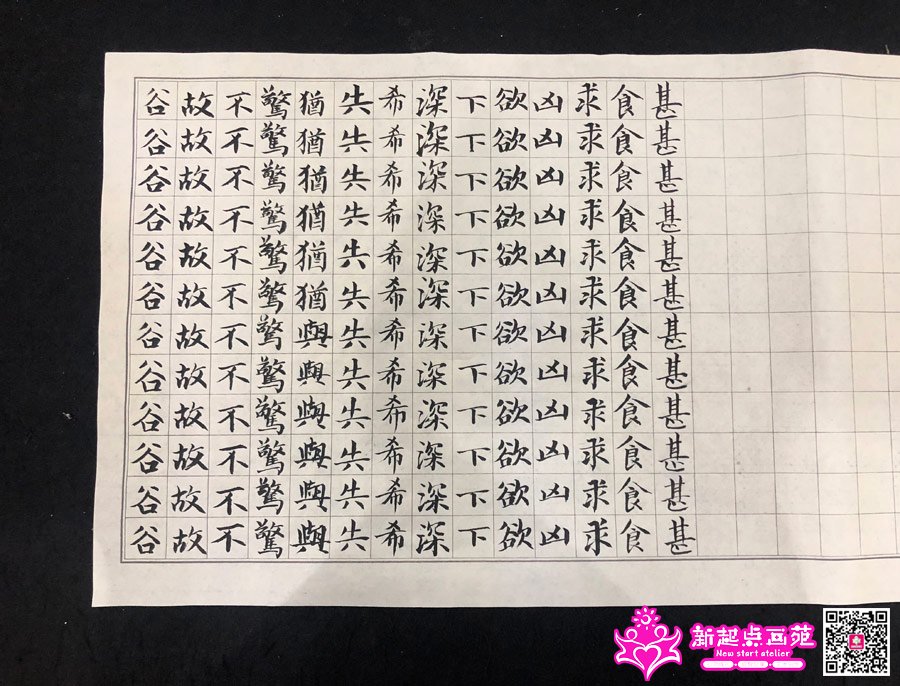 甚甚甚甚甚甚甚甚甚甚甚甚
食食食食食食食食食食食食
求求求求求求求求求求求求
凶凶凶凶凶凶凶凶凶凶凶凶
欲欲欲欲欲欲欲欲欲欲欲欲
下下下下下下下下下下下下
深深深深深深深深深深深深
希希希希希希希希希希希希
共共共共共共共共共共共共
猶猶猶猶猶猶與與與與與與
驚驚驚驚驚驚驚驚驚驚驚驚
不不不不不不不不不不不不
故故故故故故故故故故故故
谷谷谷谷谷谷谷谷谷谷谷谷
新起点画苑
New start atelier